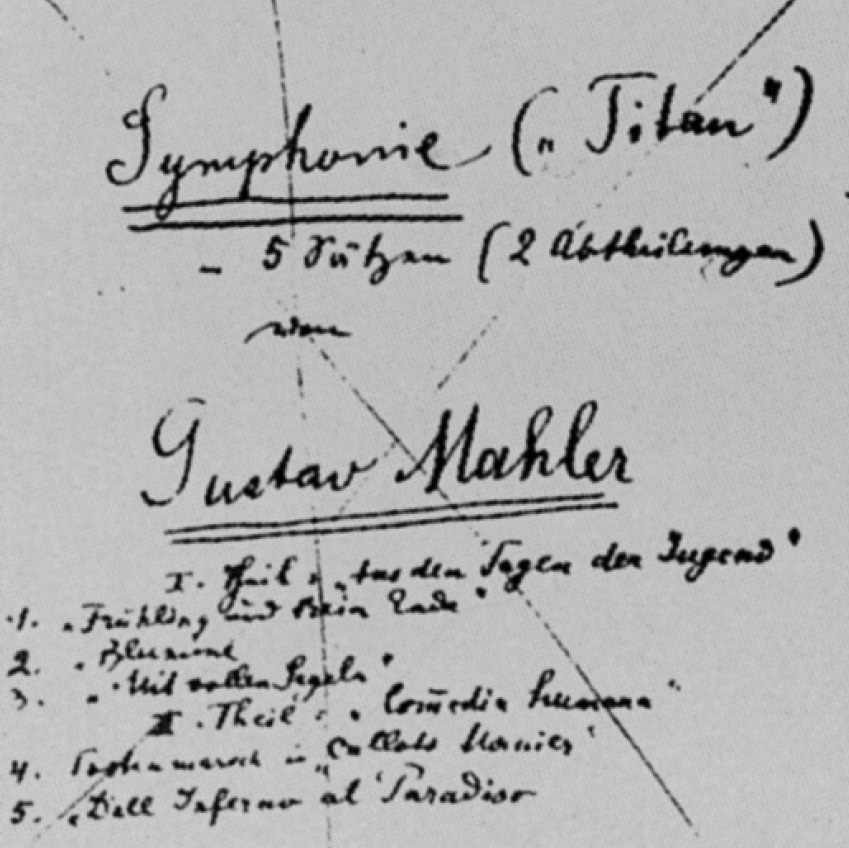 Symphonie („Titan")
– 5 Sätzen (2 Abtheilungen)
von
Gustav Mahler
I. Theil: „Aus den Tagen der Jugend"
1. „Frühling und kein Ende"
2. „Blumine
3. „Mit vollen Segeln"
II. Theil: „Comedia humana"
4. Todtenmarsch in „Callots Manier"
5. „Dall Inferno al Paradiso